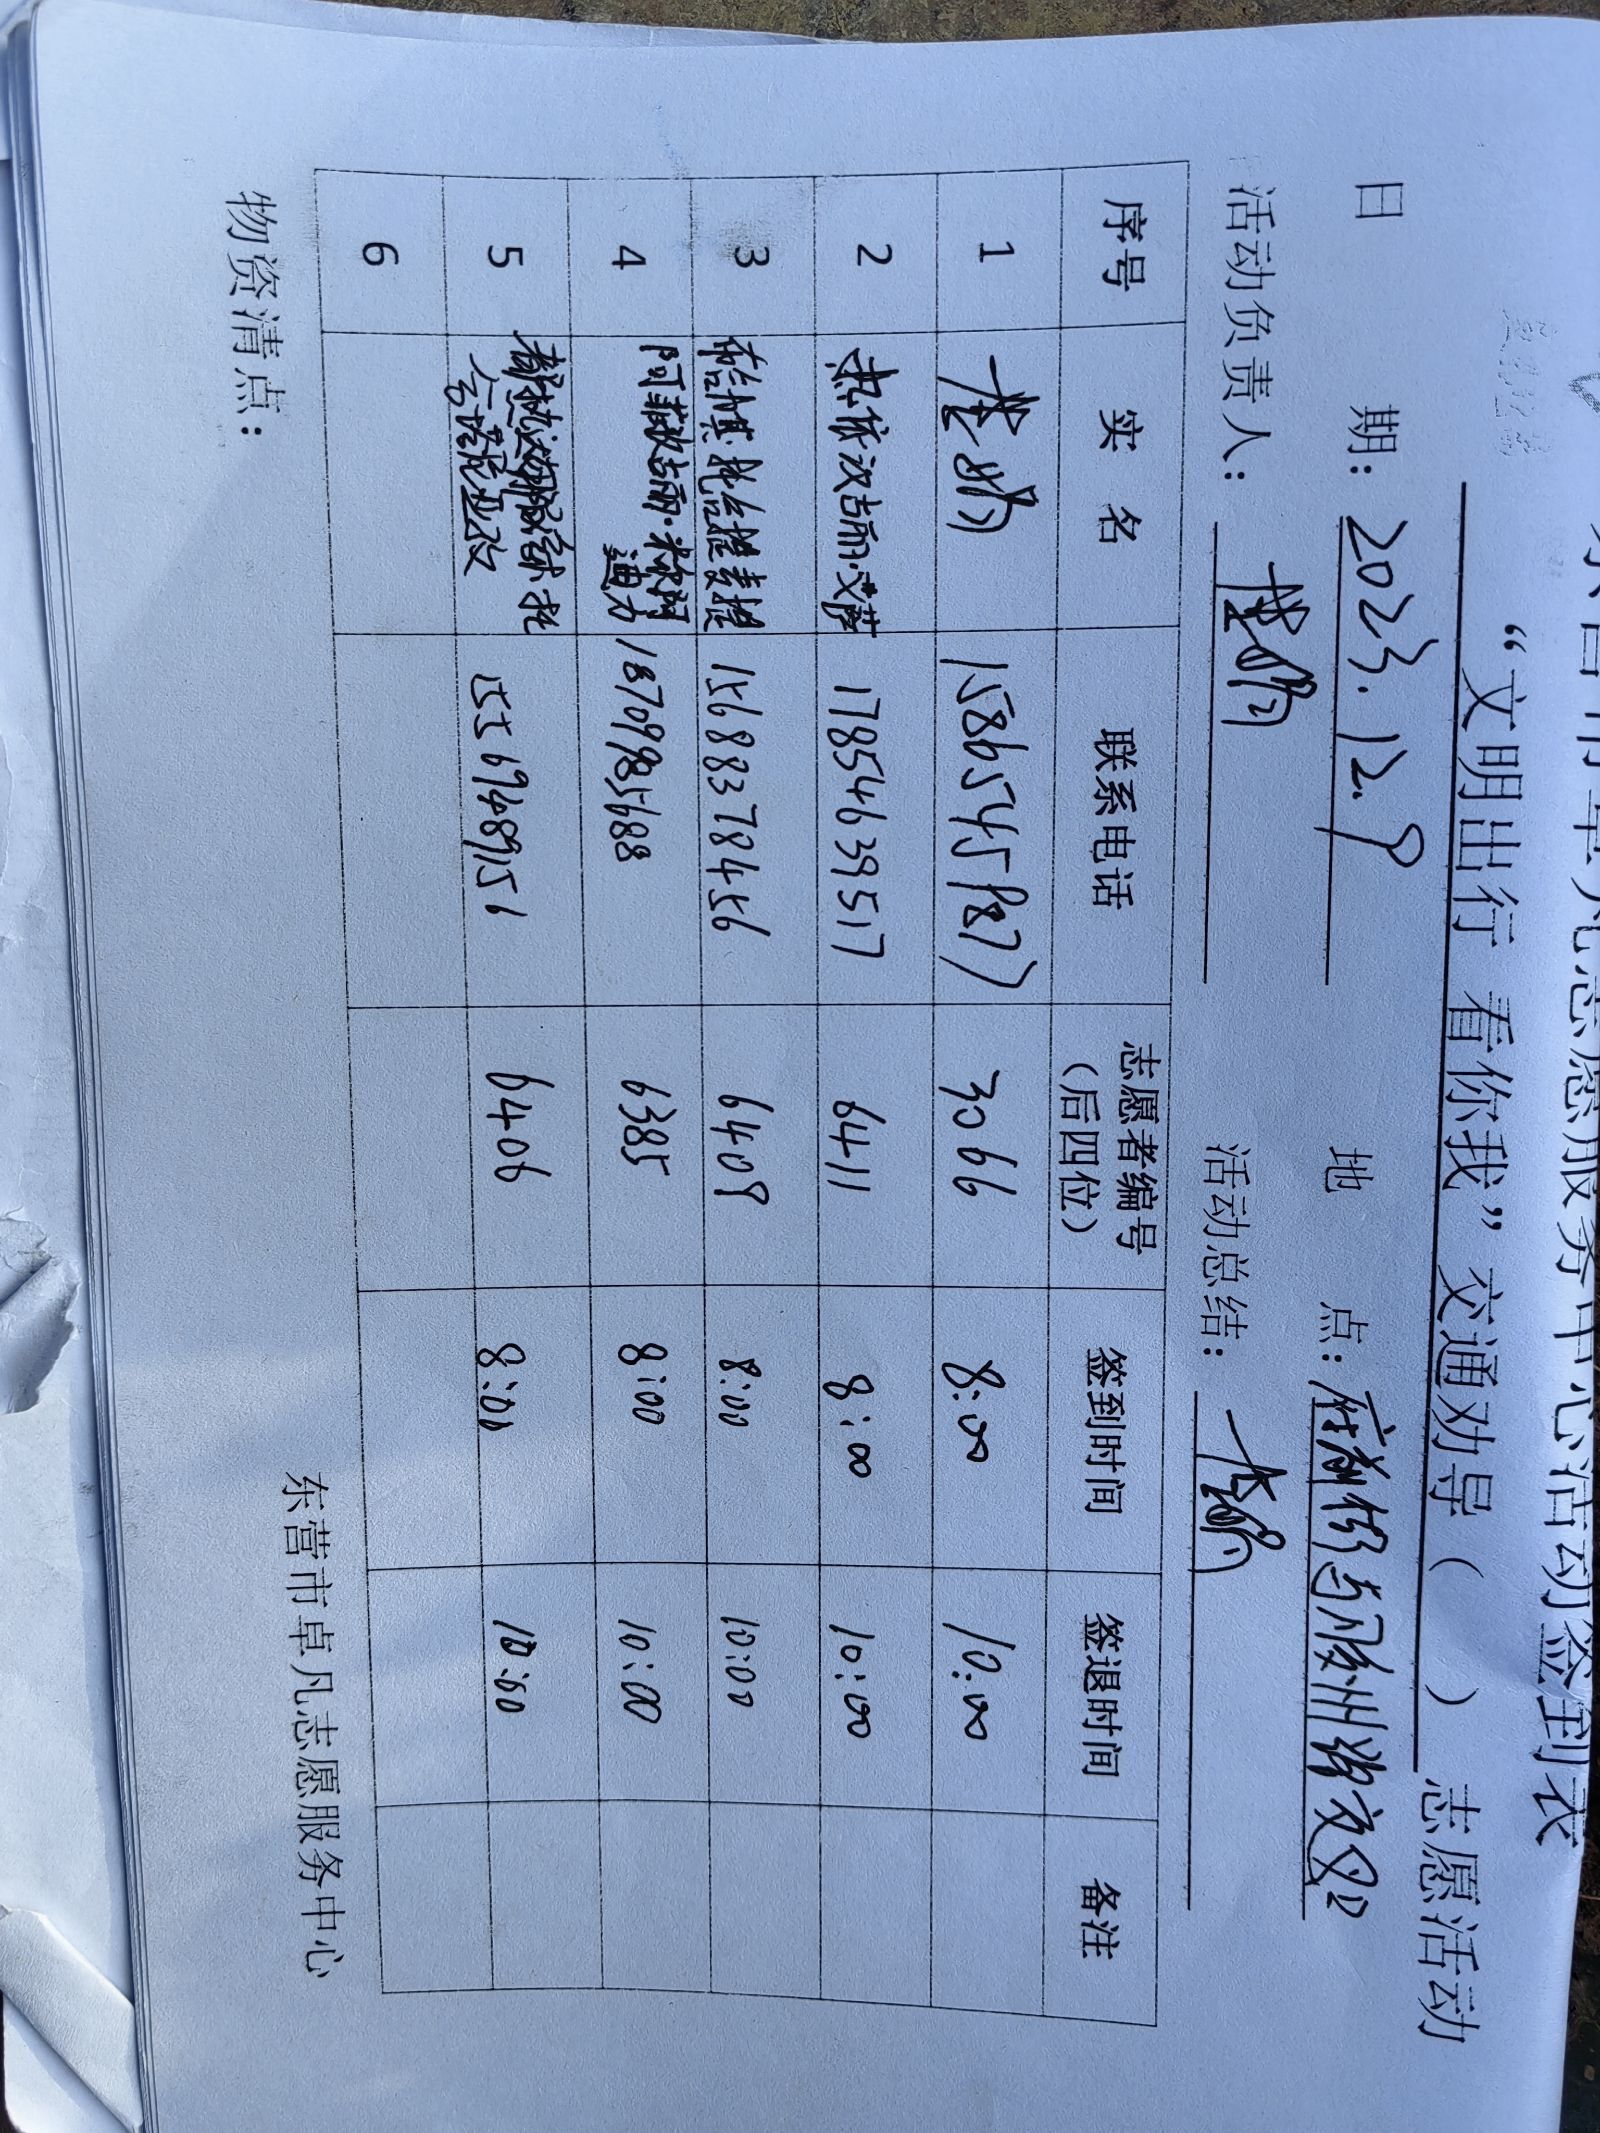 东营市卓凡志愿服务中心活动签到表
“文明出行 看你我”交通劝导（ ）志愿活动
日 期：2023.12.9 地 点：府前街与胶州路交叉口
活动负责人： 活动总结：
序号 实 名 联系电话 志愿者编号（后四位） 签到时间 签退时间 备注
1 3066 8:00 10:00
2 热依汉古丽·艾萨 17854639517 6411 8:00 10:00
3 15688378456 6409 8:00 10:00
4 18709985688 6385 8:00 10:00
5 15569489156 6406 8:00 10:00
6
物资清点：
东营市卓凡志愿服务中心